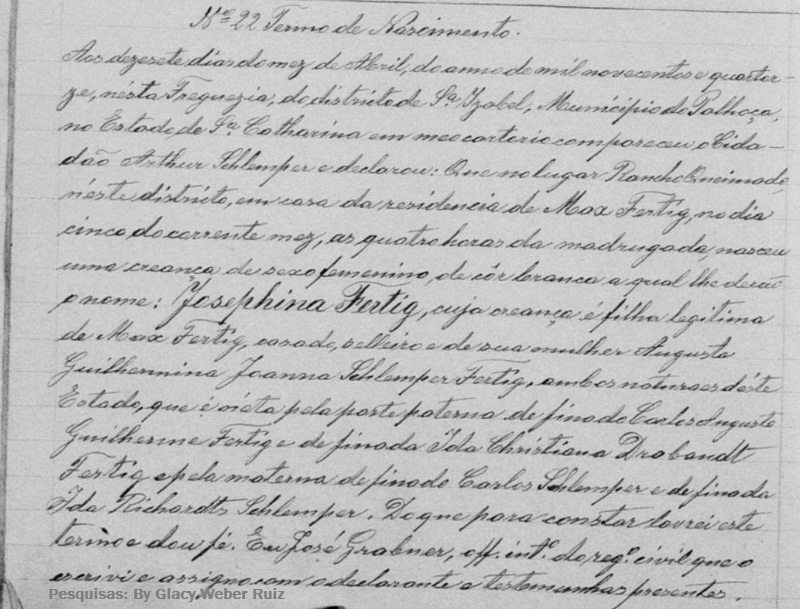 Nº 22 Termo de Nascimento.
Aos dezesete dias do mez de Abril, do anno de mil novecentos e quator-
ze, nésta Freguezia, do districto de Sta Izabel, Municipio do Palhoça,
no Estado de Sta Catharina em meo cartorio compareceu o Cida-
dão Arthur Schlemper e declarou: Que no lugar Rancho Queimado,
néste distrito, em casa da residencia de Max Fertig, no dia
cinco do corrente mez, as quatro horas da madrugada, nasceu
uma creança de sexo femenino, de côr branca a qual lhe derão
o nome: Josephina Fertig, cuja creança é filha legitima
de Max Fertig, casado, selleiro e de sua mulher Augusta
Guilhermina Joanna Schlemper Fertig, ambos naturaes déste
Estado, que é néta pela parte paterna de finado Carlos Auguste
Guilherme Fertig e de finada Ida Christiana Drabandt
Fertig e pela materna de finado Carlos Schlemper e de finada
Ida Richardts Schlemper. Do que para constar lavrei este
termo e dou fé. Eu José Grabner, off. intº. do regº. civil que o
escrivi e assigno com o declarante e testemunhas presentes.
Pesquisas: By Glacy Weber Ruiz